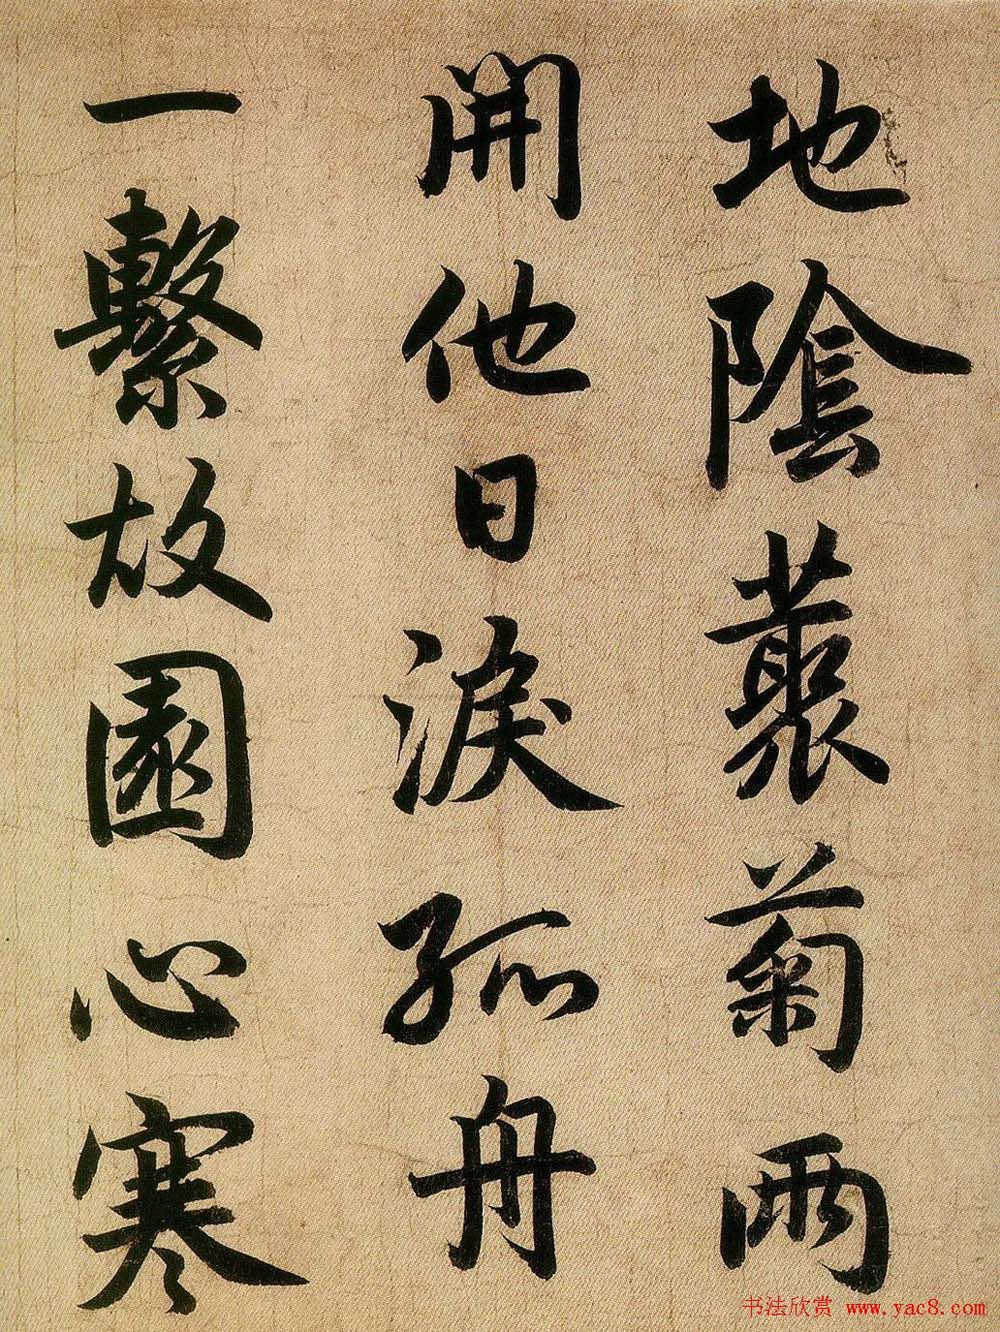 地陰叢菊兩
開他日淚孤舟
一繫故園心寒
书法欣赏 www.yac8.com